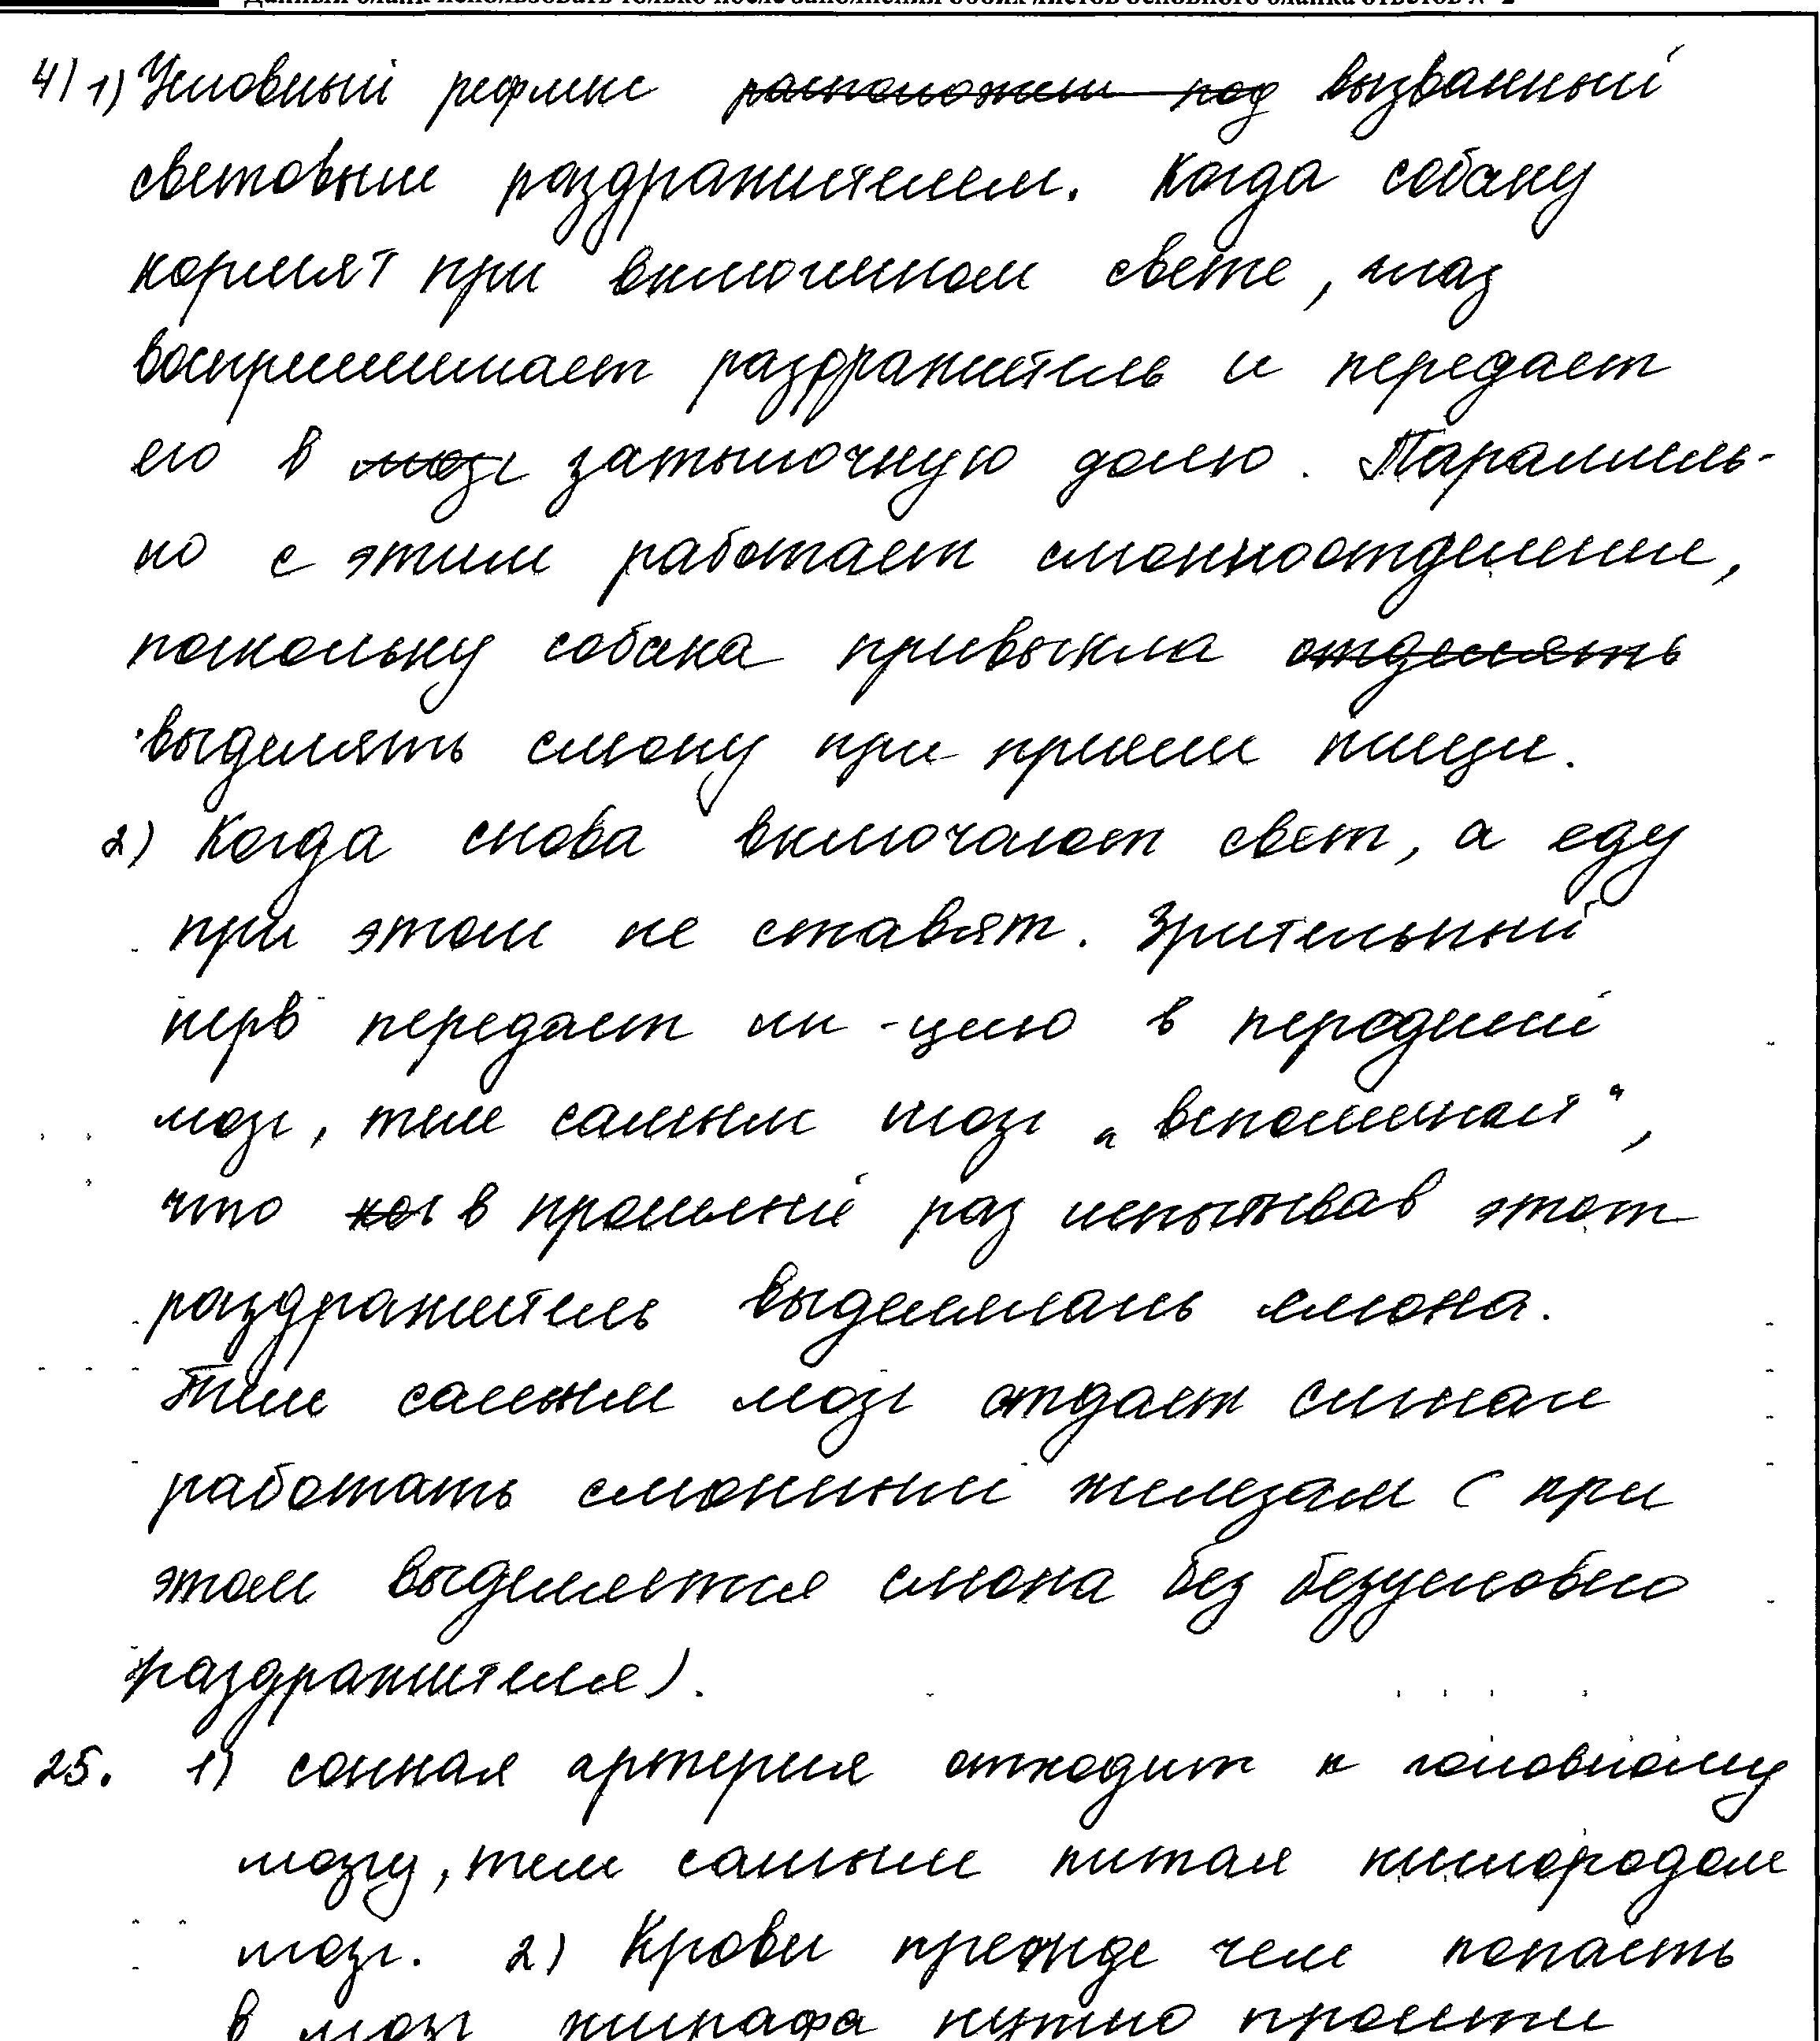 Данный бланк использовать только после заполнения обоих листов основного бланка ответов № 2
4) 1) Условный рефлекс расположен под вызванный
световым раздражителем. Когда собаку
кормят при включенном свете, глаз
воспринимает раздражитель и передает
его в мозг затылочную долю. Параллель-
но с этим работает слюноотделение,
поскольку собака привыкла отделять
выделять слюну при приеме пищи.
2) Когда снова включают свет, а еду
при этом не ставят. Зрительный
нерв передает ин-цию в передний
мозг, тем самым мозг „вспоминает“,
что ког в прошлый раз испытывав этот
раздражитель выделялась слюна.
Тем самым мозг отдает сигнал
работать слюнным железам (при
этом выделяется слюна без безусловно
раздражителя).
25. 1) сонная артерия отходит к головному
мозгу, тем самым питая кислородом
мозг. 2) Крови прежде чем попасть
в мозг жирафа нужно пройти